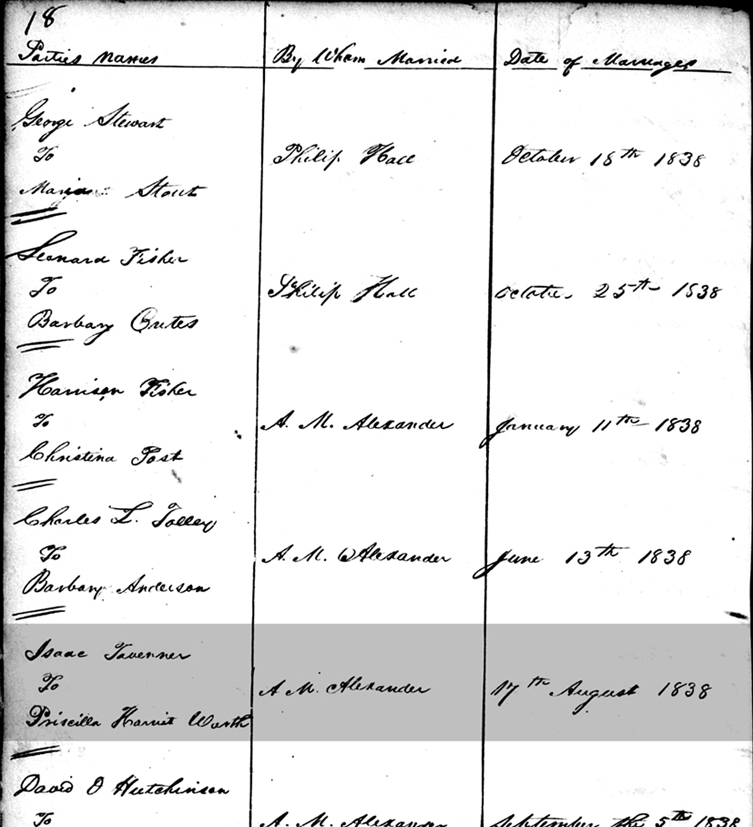 18
Parties Names By Whom Married Date of Marriages
George Stewart
To Philip Hall October 18th 1838
Stout
Leonard Fisher
To Philip Hall October 25th 1838
Barbary
Harrison Fisher
To A. M. Alexander January 11th 1838
Christina Post
Charles L. Tolley
To A. M. Alexander June 13th 1838
Barbary Anderson
Isaac Tavenner
To A M. Alexander 17th August 1838
Priscilla Harriet Worth
David O Hutchinson
To A. M. Alexander September the 5th 1838